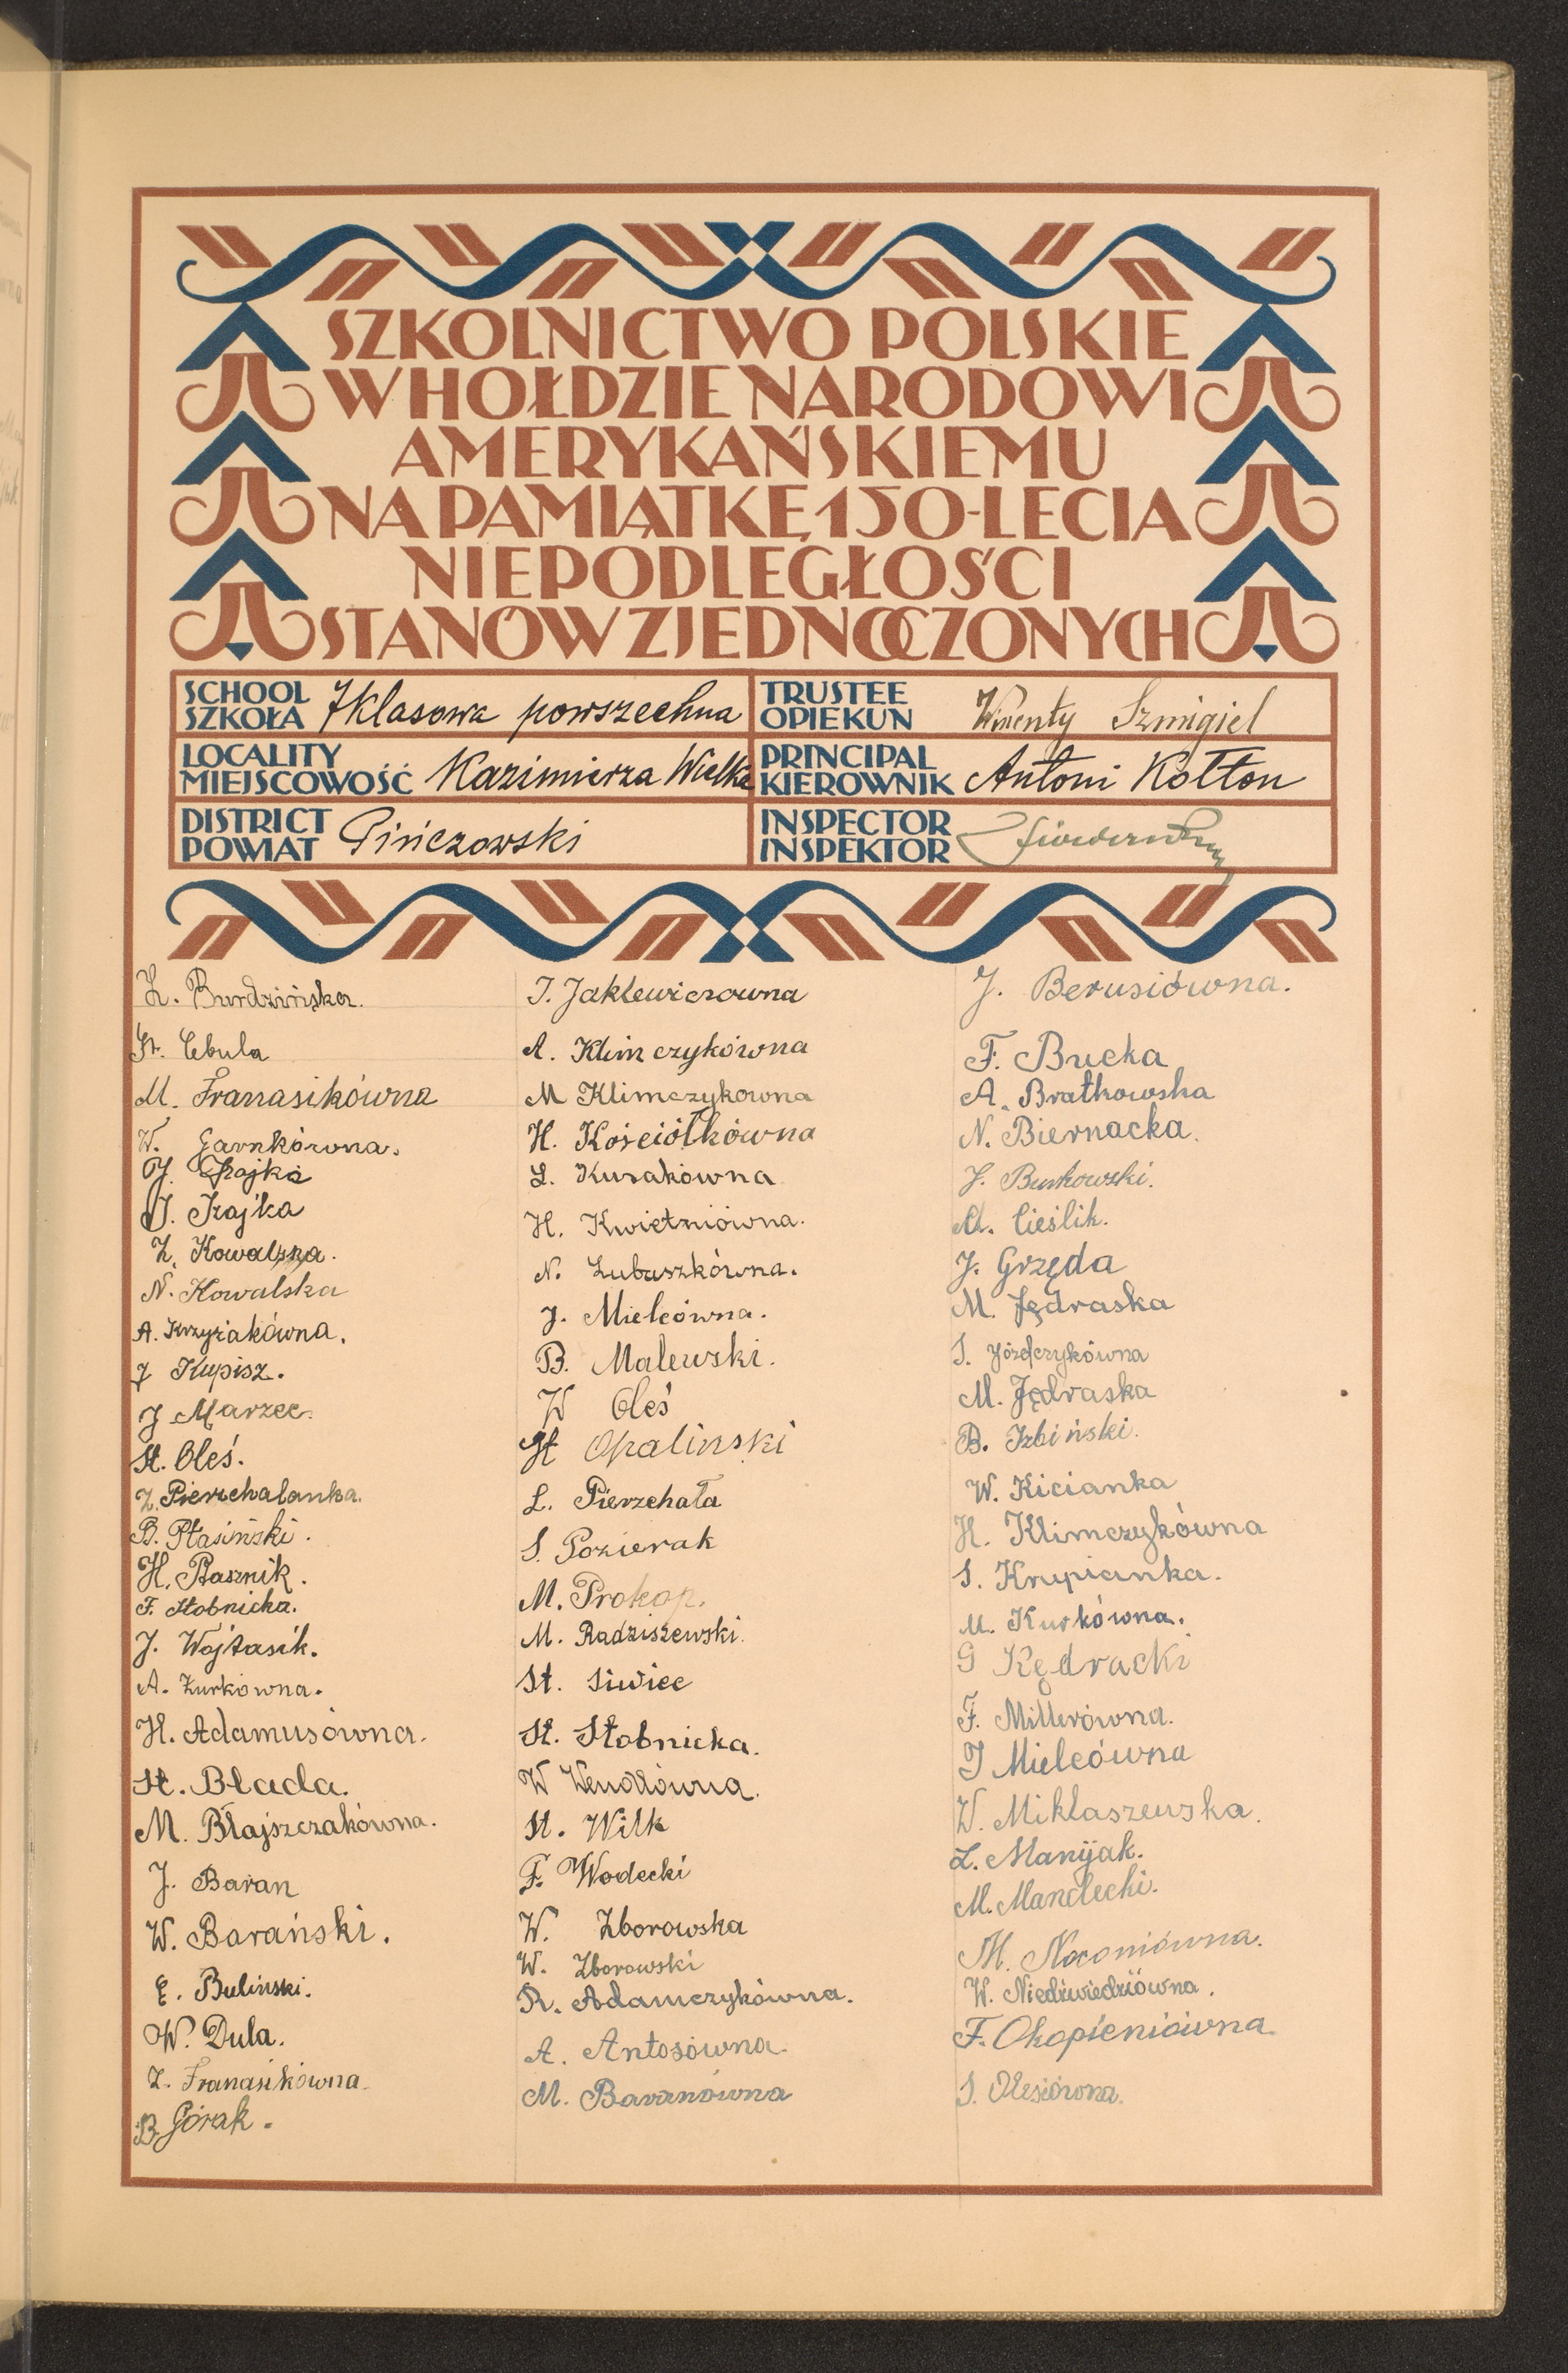 SZKOLNICTWO POLSKIE
W HOŁDZIE NARODOWI
AMERYKAŃSKIEMU
NA PAMIĄTKĘ 150-LECIA
NIEPODLEGŁOŚCI
STANÓW ZJEDNOCZONYCH
SCHOOL
SZKOŁA 7klasowa powszechna
TRUSTEE
OPIEKUN Wincenty Szmigiel
LOCALITY
MIEJSCOWOŚĆ Kazimierza Wielka
PRINCIPAL
KIEROWNIK Antoni Kołton
DISTRICT
POWIAT Pińczowski
INSPECTOR
INSPEKTOR
Z. Burdzińska.
St. Cebula
M. Franasikówna
W. Garnkówna.
J. Grajka
J. Grajka
Z. Kowalska.
N. Kowalska
A. Krzyżakówna.
J Kupisz.
J Marzec.
St. Oleś.
Z. Pierzchalanka.
B. Ptasiński.
H. Ptasznik.
F. Stobnicka.
J. Wójtasik.
A. Żurkówna.
H. Adamusówna.
St. Błada.
M. Błajszczakówna.
J. Baran
W. Barański.
E. Buliński.
W. Dula.
Z. Franasikówna
B Górak.
I. Jaklewiczowna
A. Klimczykówna
M Klimczykowna
H. Kościółkówna
L. Kusakówna
H. Kwietniówna.
N. Lubaszkówna.
J. Mielcówna.
B. Malewski.
W Oleś
St Opalinski
L. Pierzchała
S. Pozierak
M. Prokop.
M. Radziszewski.
St. Siwiec
St. Stobnicka.
W Wendówna.
St. Wilk
F. Wodecki
W. Zborowska
W. Zborowski
R. Adamczykówna.
A. Antosówna.
M. Baranówna
J. Berusiówna.
F. Bucka
A. Bratkowska
N. Biernacka.
J. Burkowski.
A. Cieślik.
J. Grzęda
M. Jędraska
S. Józefczykówna
M. Jędraska
B. Izbiński.
W. Kicianka
H. Klimczykówna
S. Krupianka.
M. Kurkówna.
G Kędracki
F. Millerówna.
J Mielcówna
W. Miklaszewska.
L. Manijak.
M. Mandecki.
M. Noconiówna.
W. Niedźwiedziówna.
F. Okopieniówna.
S. Olesiówna.